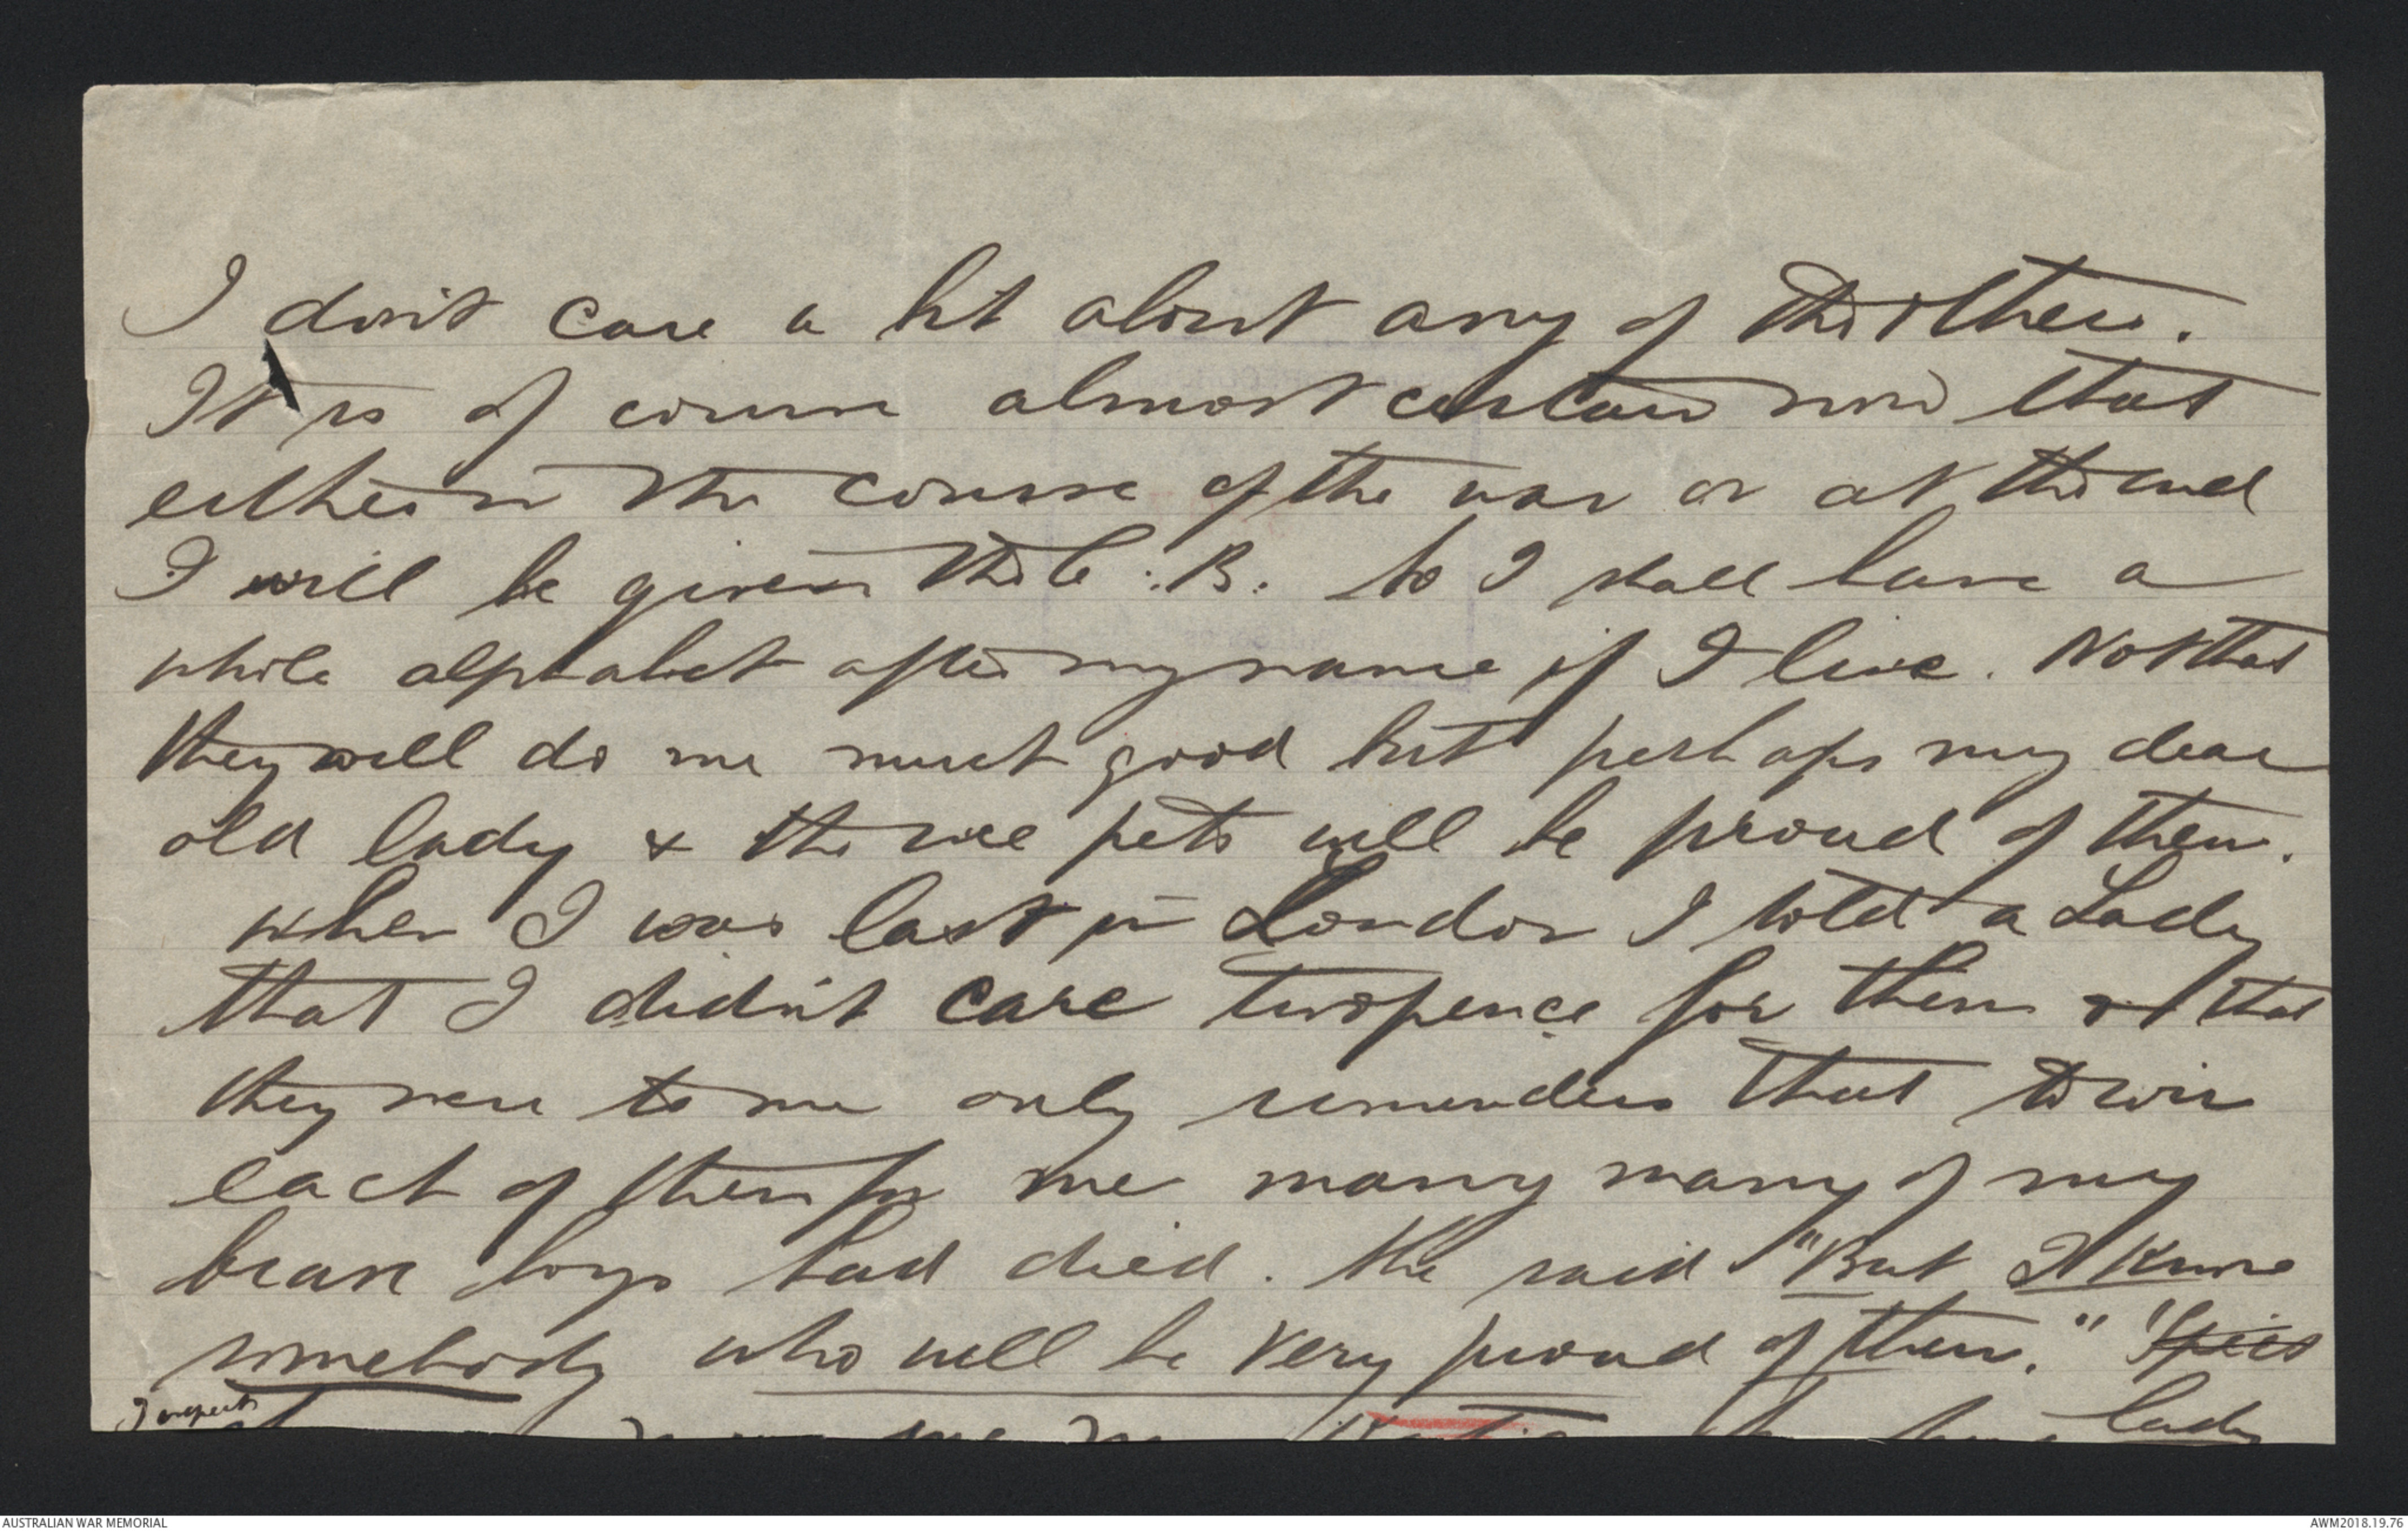 I don't care a bit about any of the others.
It is of course almost certain now that
either in the course of the war or at the end
I will be given the C.B. so I shall have a
whole alphabet after my name if I live. Not that
they will do me much good but perhaps my dear
old lady & the wee pets will be proud of them.
When I was last in London I told a Lady
that I didn't care twopence for them & that
they were to me only reminders that to win
each of them for me many many of my
brave boys had died. She said "But I know
somebody who will be very proud of them."
I expect
lady
AUSTRALIAN WAR MEMORIAL
AWM2018.19.76